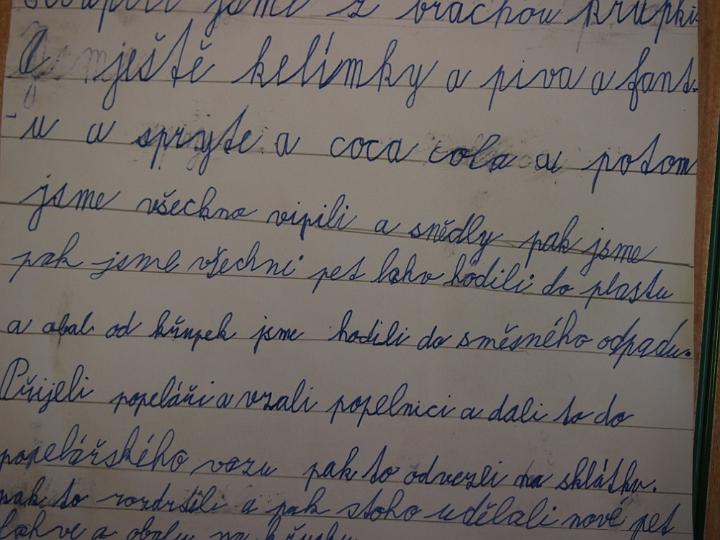 jsme z bráchou křupki
A mještě kelímky a piva a fant-
-u a spryte a coca cola a potom
jsme všechno vipili a snědly pak jsme
pak jsme všechni pet lahv hodili do plastu
a obal od křupek jsme hodili do směsného odpadu.
Přijeli popeláři a vzali popelnici a dali to do
popelářského vozu pak to odvezli na sklátku.
pak to rozdrtili a pak stoho udělali nové pet
lahve a obalu na křupky